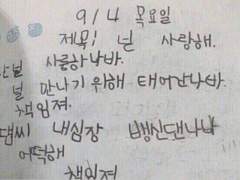 9/4 목요일
제목; 넌 사랑해.
난널 사릉하나바.
널 만나기 위해 태어난나바.
책임져.
댐씨 내심장 뱅신댄나나
어떡해
책임져